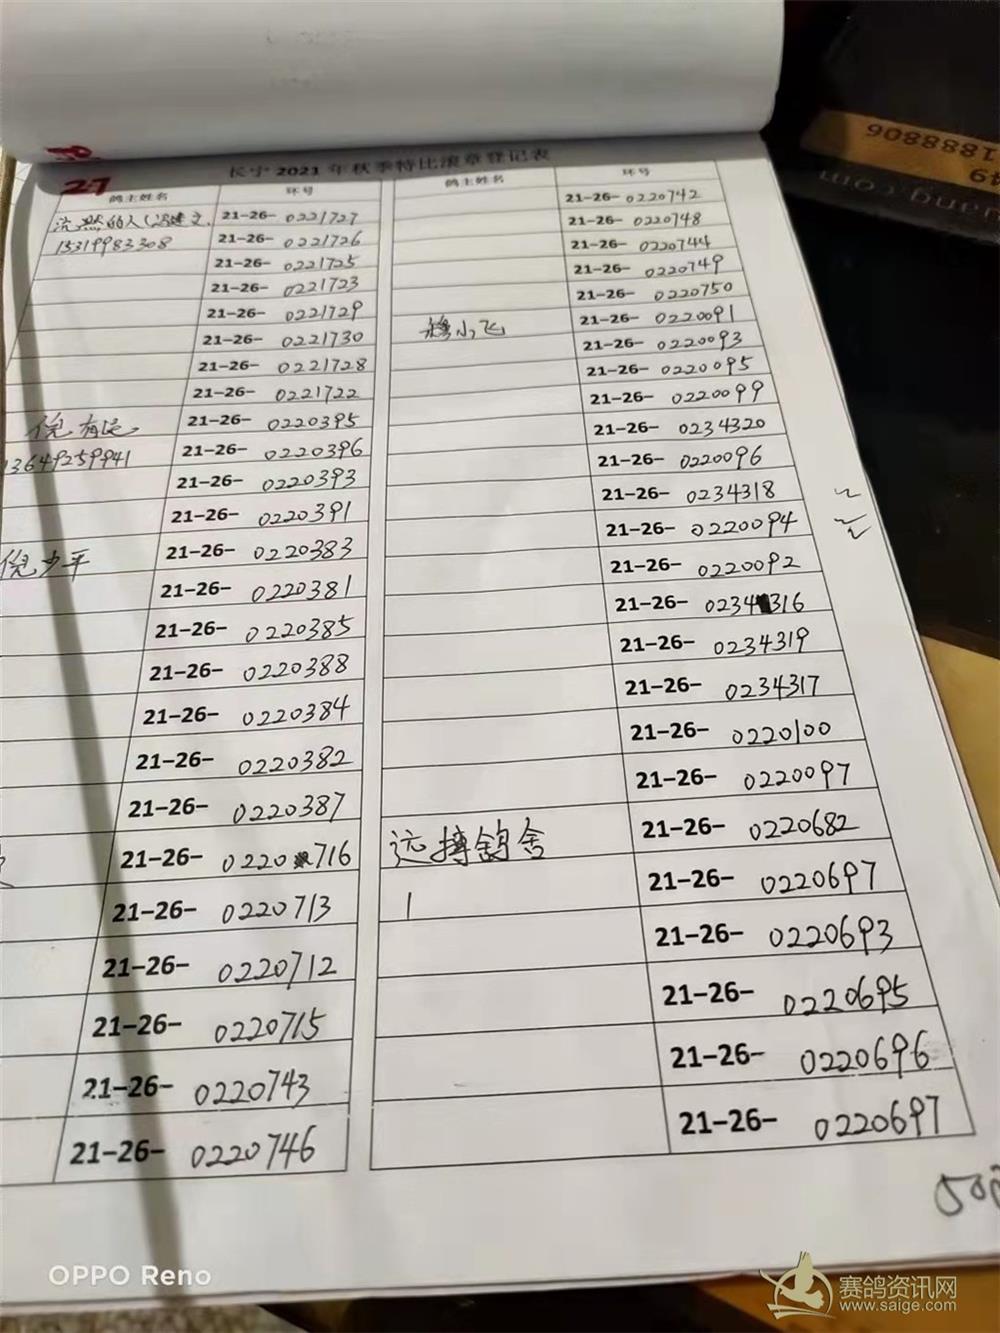 27
长宁 2021 年秋季特比滚章登记表
鸽主姓名 环号
21-26- 0221727
15319983308 21-26- 0221726
21-26- 0221725
21-26- 0221723
21-26- 0221729
21-26- 0221730
21-26- 0221728
21-26- 0221722
倪有运 21-26- 0220395
13649259941 21-26- 0220396
21-26- 0220393
21-26- 0220391
倪少平 21-26- 0220383
21-26- 0220381
21-26- 0220385
21-26- 0220388
21-26- 0220384
21-26- 0220382
21-26- 0220387
21-26- 0220716
21-26- 0220713
21-26- 0220712
21-26- 0220715
21-26- 0220743
21-26- 0220746
鸽主姓名 环号
21-26- 0220742
21-26- 0220748
21-26- 0220744
21-26- 0220749
21-26- 0220750
穆小飞 21-26- 0220091
21-26- 0220093
21-26- 0220095
21-26- 0220099
21-26- 0234320
21-26- 0220096
21-26- 0234318
21-26- 0220094
21-26- 0220092
21-26- 0234316
21-26- 0234319
21-26- 0234317
21-26- 0220100
21-26- 0220097
远搏鸽舍 21-26- 0220682
1 21-26- 0220697
21-26- 0220693
21-26- 0220695
21-26- 0220696
21-26- 0220697
1888806
OPPO Reno
赛鸽资讯网
www.saige.com